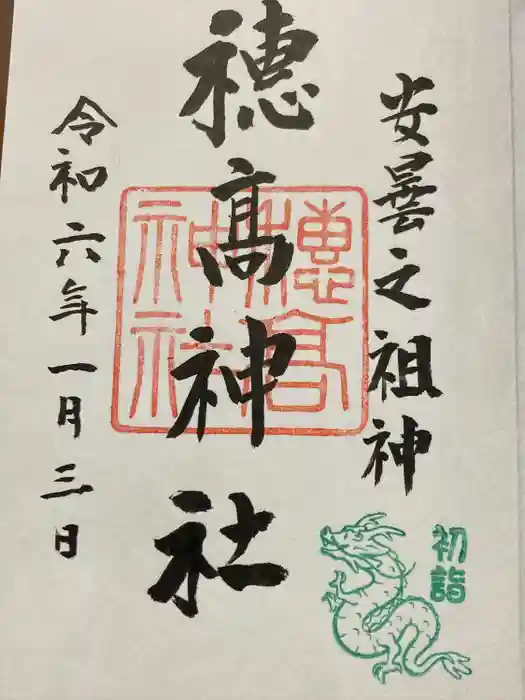 安曇之祖神
穂髙神社
穂高神社
令和六年一月三日
初詣